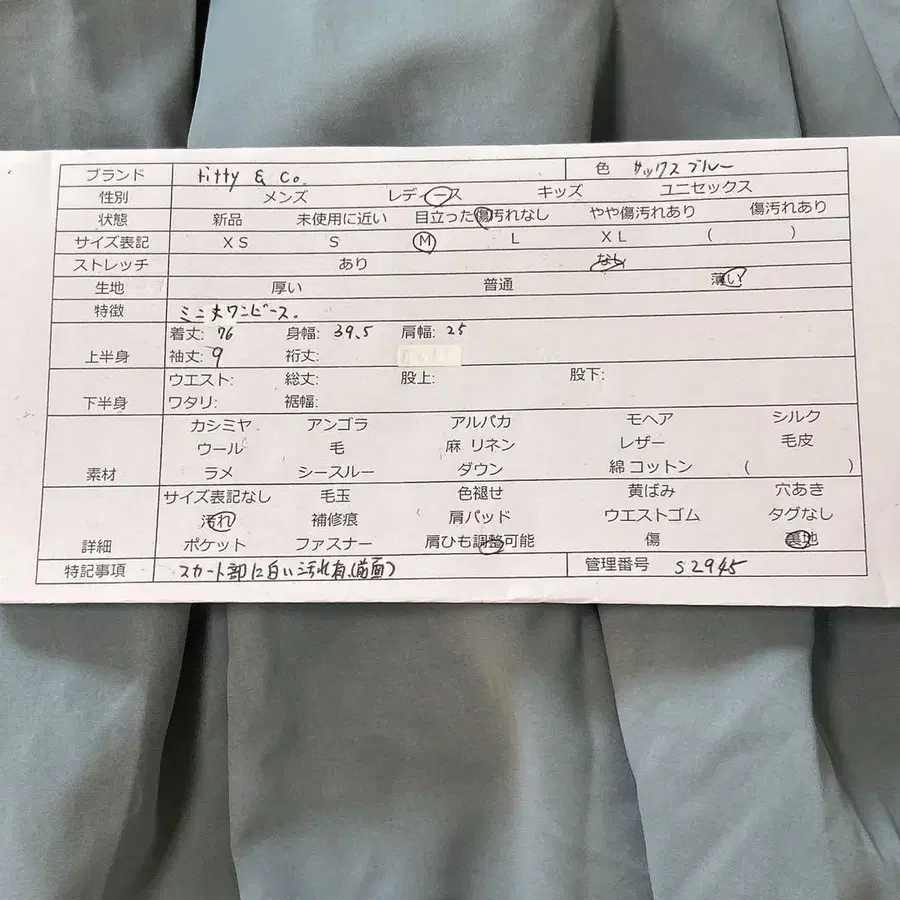 ブランド titty & Co. 色 サックスブルー
性別 メンズ レディース キッズ ユニセックス
状態 新品 未使用に近い 目立った傷汚れなし やや傷汚れあり 傷汚れあり
サイズ表記 XS S M L XL ( )
ストレッチ あり なし
生地 厚い 普通 薄い
特徴 ミニ丈ワンピース。
着丈: 76 身幅: 39.5 肩幅: 25
上半身 袖丈: 9 裄丈:
ウエスト: 総丈: 股上: 股下:
下半身 ワタリ: 裾幅:
カシミヤ アンゴラ アルパカ モヘア シルク
ウール 毛 麻 リネン レザー 毛皮
素材 ラメ シースルー ダウン 綿 コットン ( )
サイズ表記なし 毛玉 色褪せ 黄ばみ 穴あき
汚れ 補修痕 肩パッド ウエストゴム タグなし
詳細 ポケット ファスナー 肩ひも調整可能 傷 裏地
特記事項 スカート部に白い汚れ有。(前面) 管理番号 S2945